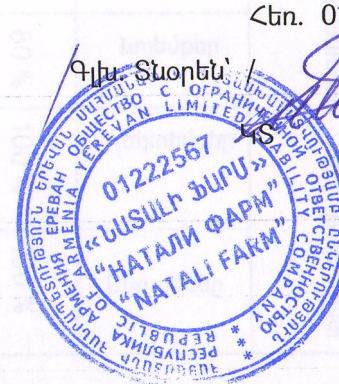 Հեռ. 0
Գլխ. Տնօրեն՝ /
ԿՏ
ՀԱՅԱՍՏԱՆԻ ՀԱՆՐԱՊԵՏՈՒԹՅՈՒՆ ԵՐԵՎԱՆ ՍԱՀՄԱՆԱՓԱԿ ՊԱՏԱՍԽԱՆԱՏՎՈՒԹՅԱՄԲ ԸՆԿԵՐՈՒԹՅՈՒՆ
РЕСПУБЛИКА АРМЕНИЯ ЕРЕВАН ОБЩЕСТВО С ОГРАНИЧЕННОЙ ОТВЕТСТВЕННОСТЬЮ
REPUBLIC OF ARMENIA YEREVAN LIMITED LIABILITY COMPANY
01222567
«ՆԱՏԱԼԻ ՖԱՐՄ»
"НАТАЛИ ФАРМ"
"NATALI FARM"